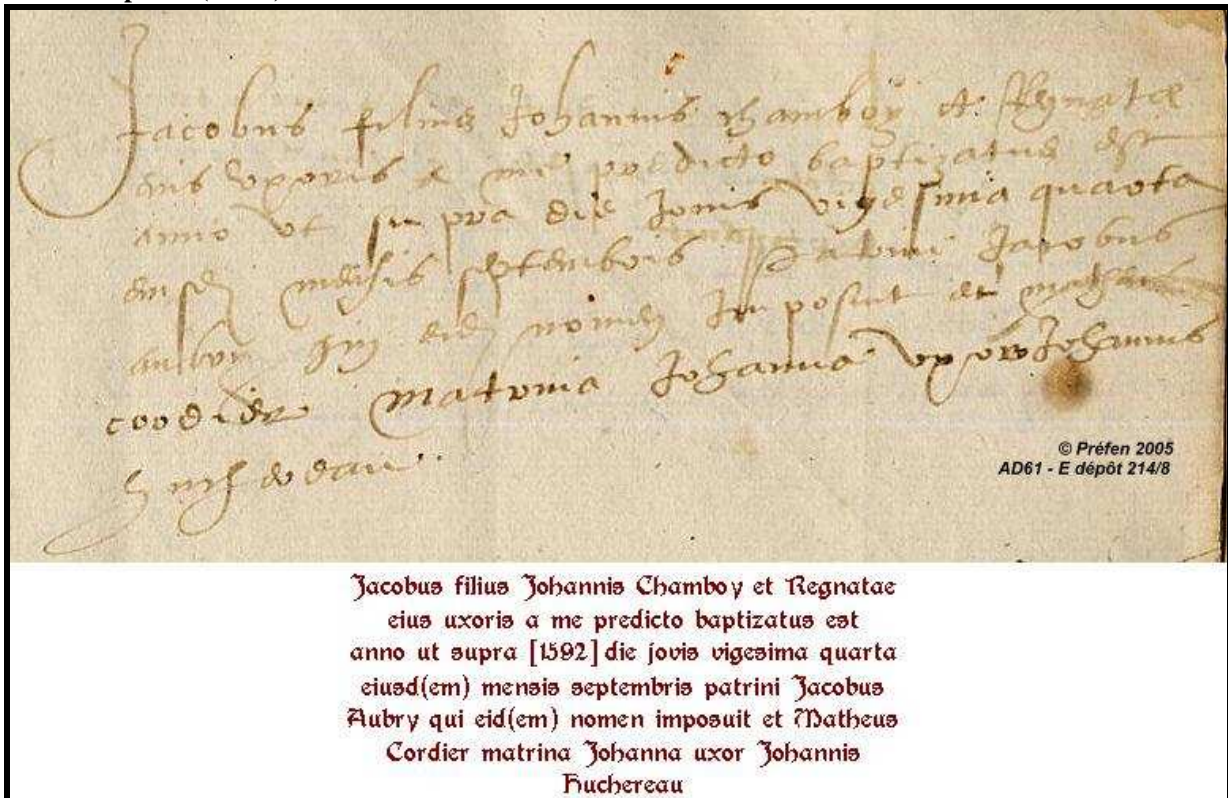 Jacobus filius Johannis Chamboy et Regnatae
eius uxoris a me predicto baptizatus est
anno ut supra die Jovis vigesima quarta
eiusd mensis septembris Patrini Jacobus
aubry qui eid nomen imposuit et matheus
cordier matrina Johanna uxor Johannis
huchereau
© Préfen 2005
AD61 - E dépôt 214/8
Jacobus filius Johannis Chamboy et Regnatae
eius uxoris a me predicto baptizatus est
anno ut supra [1592] die jovis vigesima quarta
eiusd(em) mensis septembris patrini Jacobus
Aubry qui eid(em) nomen imposuit et Matheus
Cordier matrina Johanna uxor Johannis
Huchereau